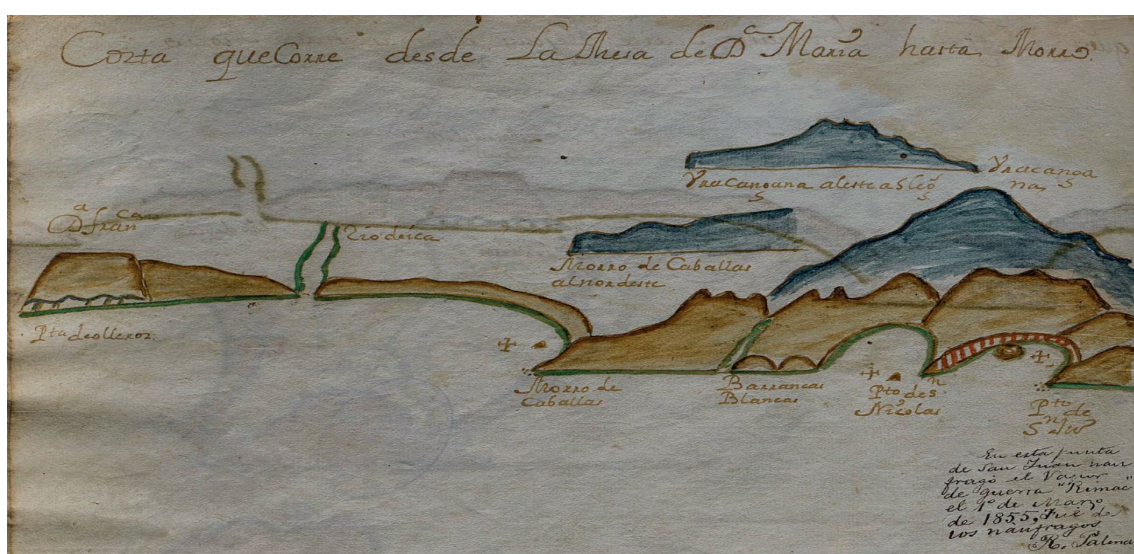 Cozta que Corre desde La Mesa de Dª Maria hasta Morro
Yracanoana aleste a 5 legˢ
Yracanoa
na
Dª franca
Rio deica
Morro de Caballas
al nordeste
Pta de olleros
Morro de
Caballas
Barrancas
Blancas
Pto de Sn
Nicolas
Pto de
Sn Ju
En esta punta
de San Juan nau
fragó el Vapor
de guerra "Rimac"
el 1º de Marzo
de 1855. Fui de
los naufragos
R. Palma